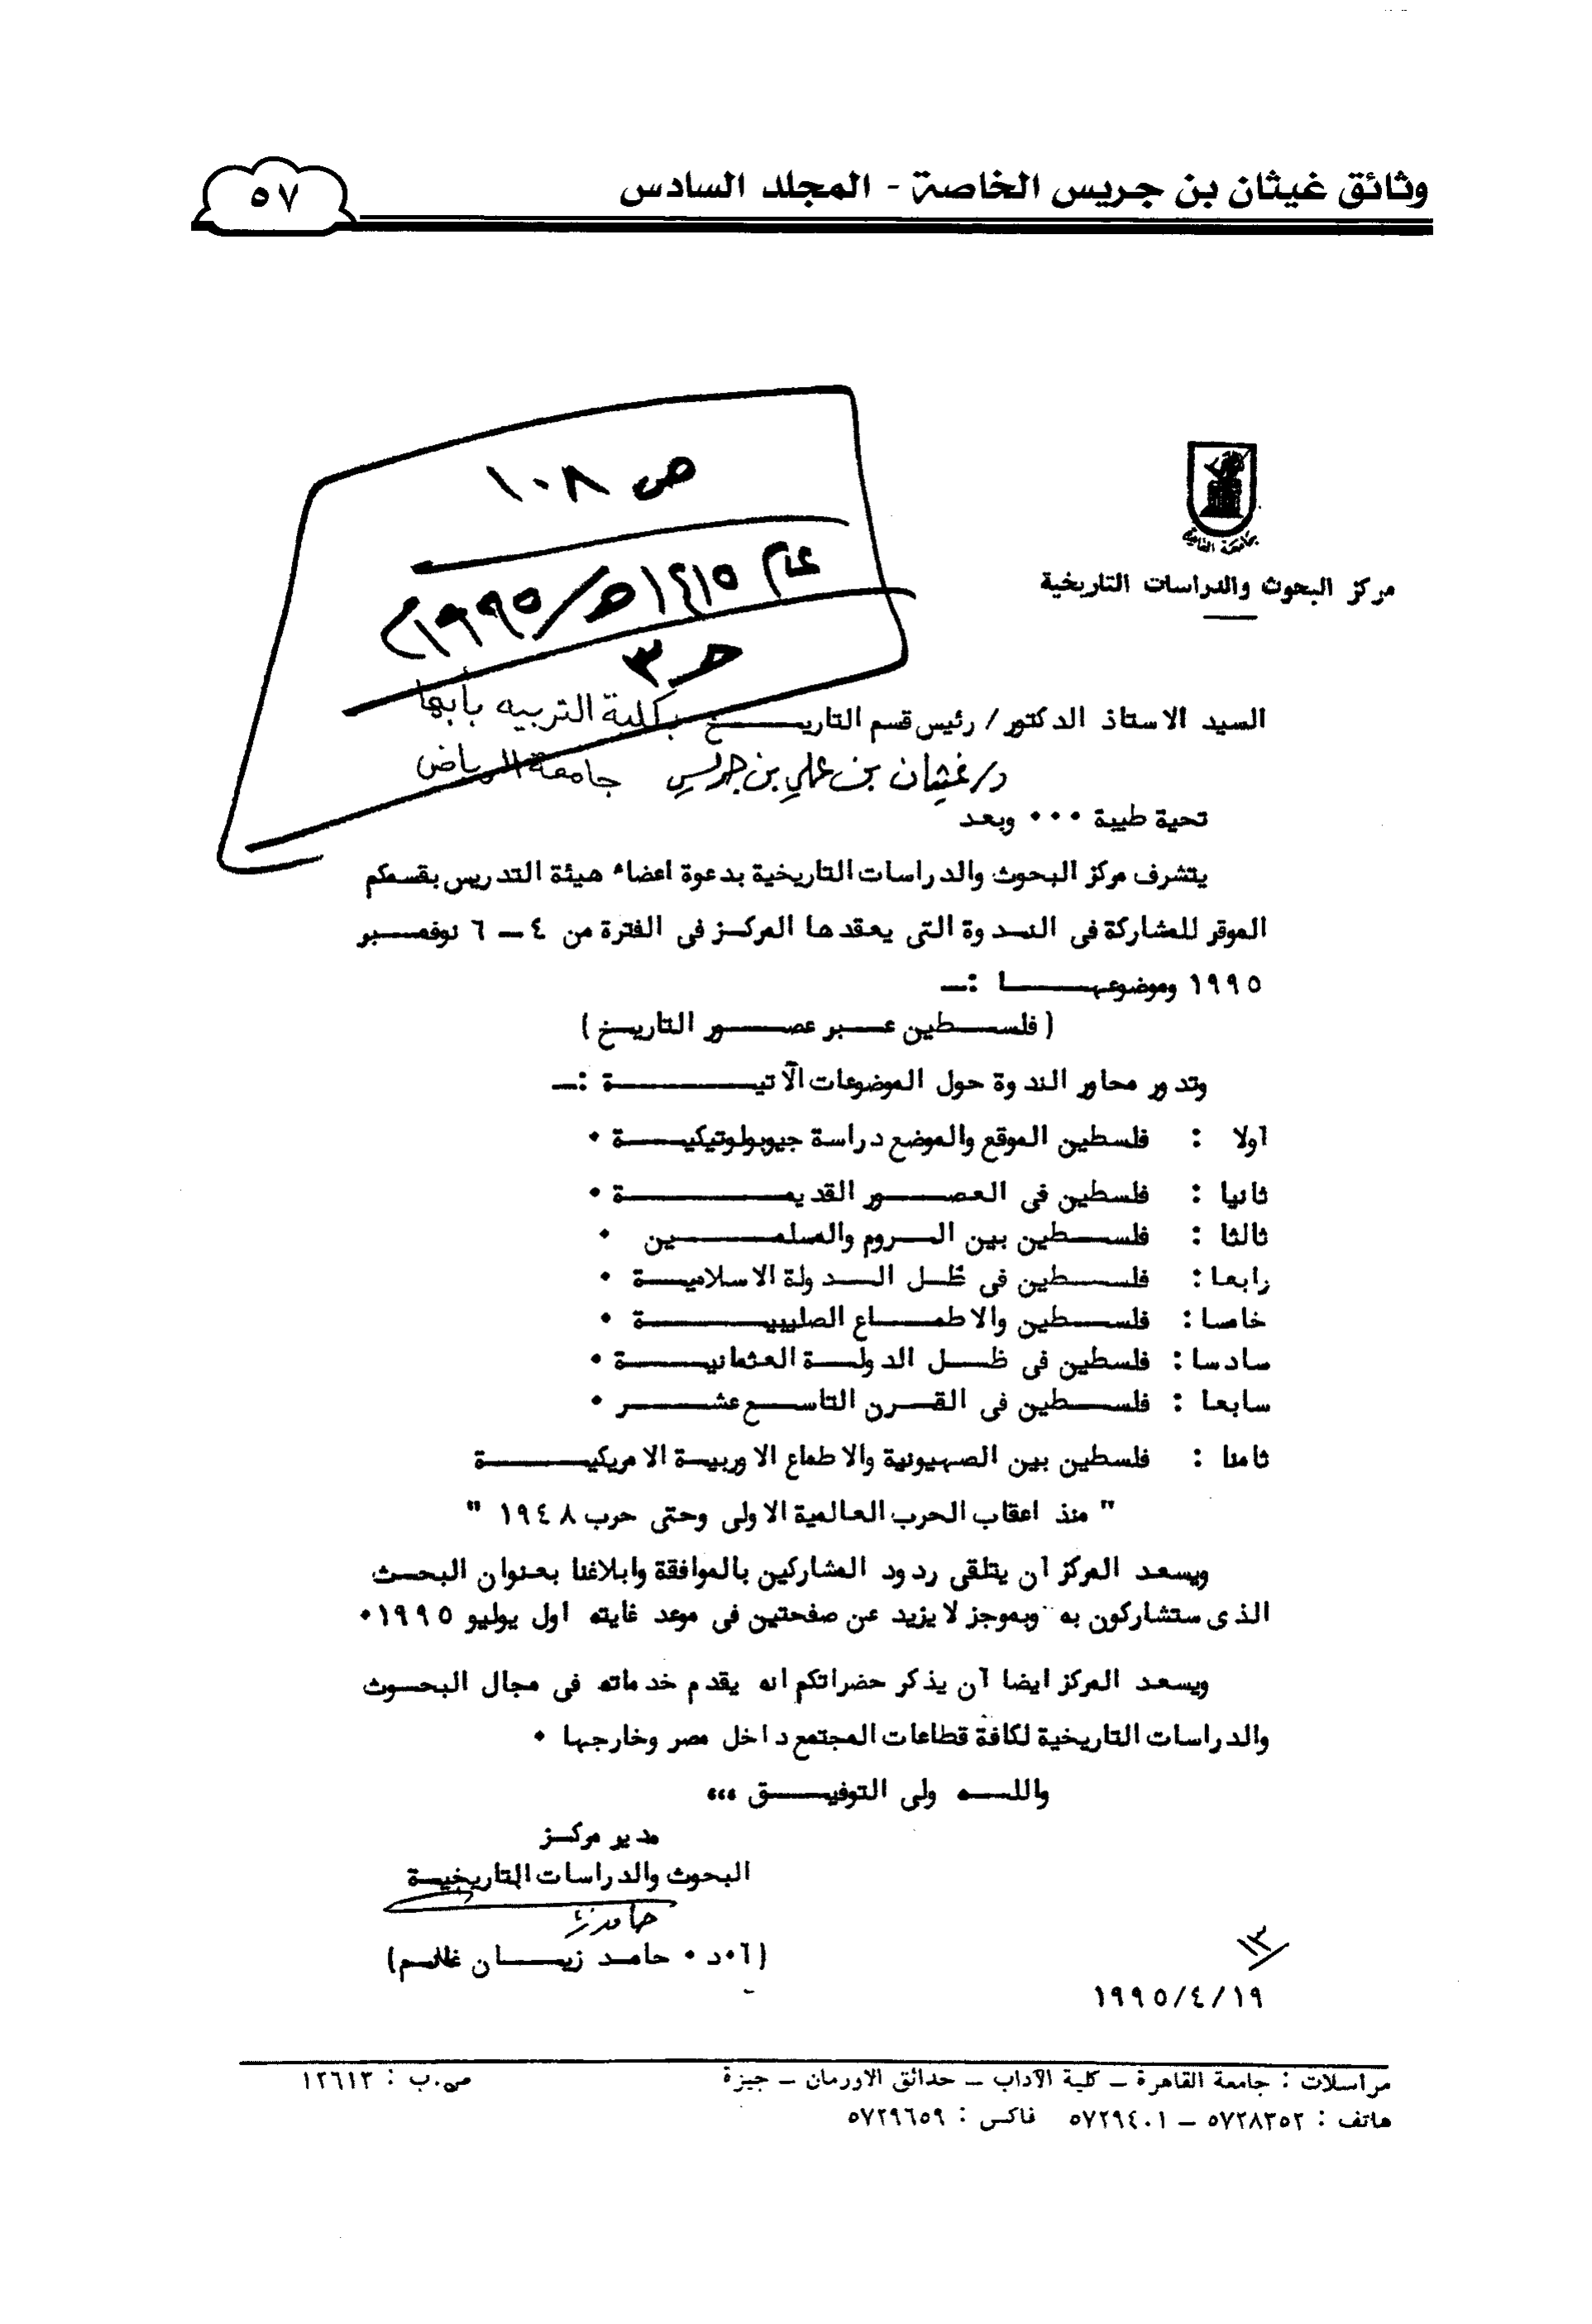 وثائق غيثان بن جريس الخاصة - المجلد السادس
٥٧
ص ١٠٨
عام ١٤١٥هـ/١٩٩٥م
حـ ٣
جامعة القاهرة
مركز البحوث والدراسات التاريخية
السيد الاستاذ الدكتور / رئيس قسم التاريخ بكلية التربيه بأبها
د/غيثان بن علي بن جريس جامعة الرياض
تحية طيبة ٠٠٠ وبعد
يتشرف مركز البحوث والدراسات التاريخية بدعوة اعضاء هيئة التدريس بقسمكم
الموقر للمشاركة فى الندوة التى يعقدها المركز فى الفترة من ٤ – ٦ نوفمبر
١٩٩٥ وموضوعها :–
( فلسطين عبر عصور التاريخ )
وتدور محاور الندوة حول الموضوعات الآتية :–
أولا : فلسطين الموقع والموضع دراسة جيوبولوتيكية ٠
ثانيا : فلسطين فى العصور القديمة ٠
ثالثا : فلسطين بين الروم والمسلمين ٠
رابعا : فلسطين فى ظل الدولة الاسلامية ٠
خامسا : فلسطين والاطماع الصليبية ٠
سادسا : فلسطين فى ظل الدولة العثمانية ٠
سابعا : فلسطين فى القرن التاسع عشر ٠
ثامنا : فلسطين بين الصهيونية والاطماع الاوربية الامريكية
" منذ اعقاب الحرب العالمية الاولى وحتى حرب ١٩٤٨ "
ويسعد المركز أن يتلقى ردود المشاركين بالموافقة وابلاغنا بعنوان البحث
الذى ستشاركون به وبموجز لا يزيد عن صفحتين فى موعد غايته اول يوليو ١٩٩٥٠
ويسعد المركز ايضا أن يذكر حضراتكم انه يقدم خدماته فى مجال البحوث
والدراسات التاريخية لكافة قطاعات المجتمع داخل مصر وخارجها ٠
والله ولى التوفيق ،،،
مدير مركز
البحوث والدراسات التاريخية
(أ٠د ٠ حامد زيان غانم)
١٣
١٩٩٥/٤/١٩
مراسلات : جامعة القاهرة – كلية الآداب – حدائق الاورمان – جيزة ص.ب : ١٢٦١٣
هاتف : ٥٧٢٨٣٥٢ – ٥٧٢٩٤٠١ فاكس : ٥٧٢٩٦٥٩